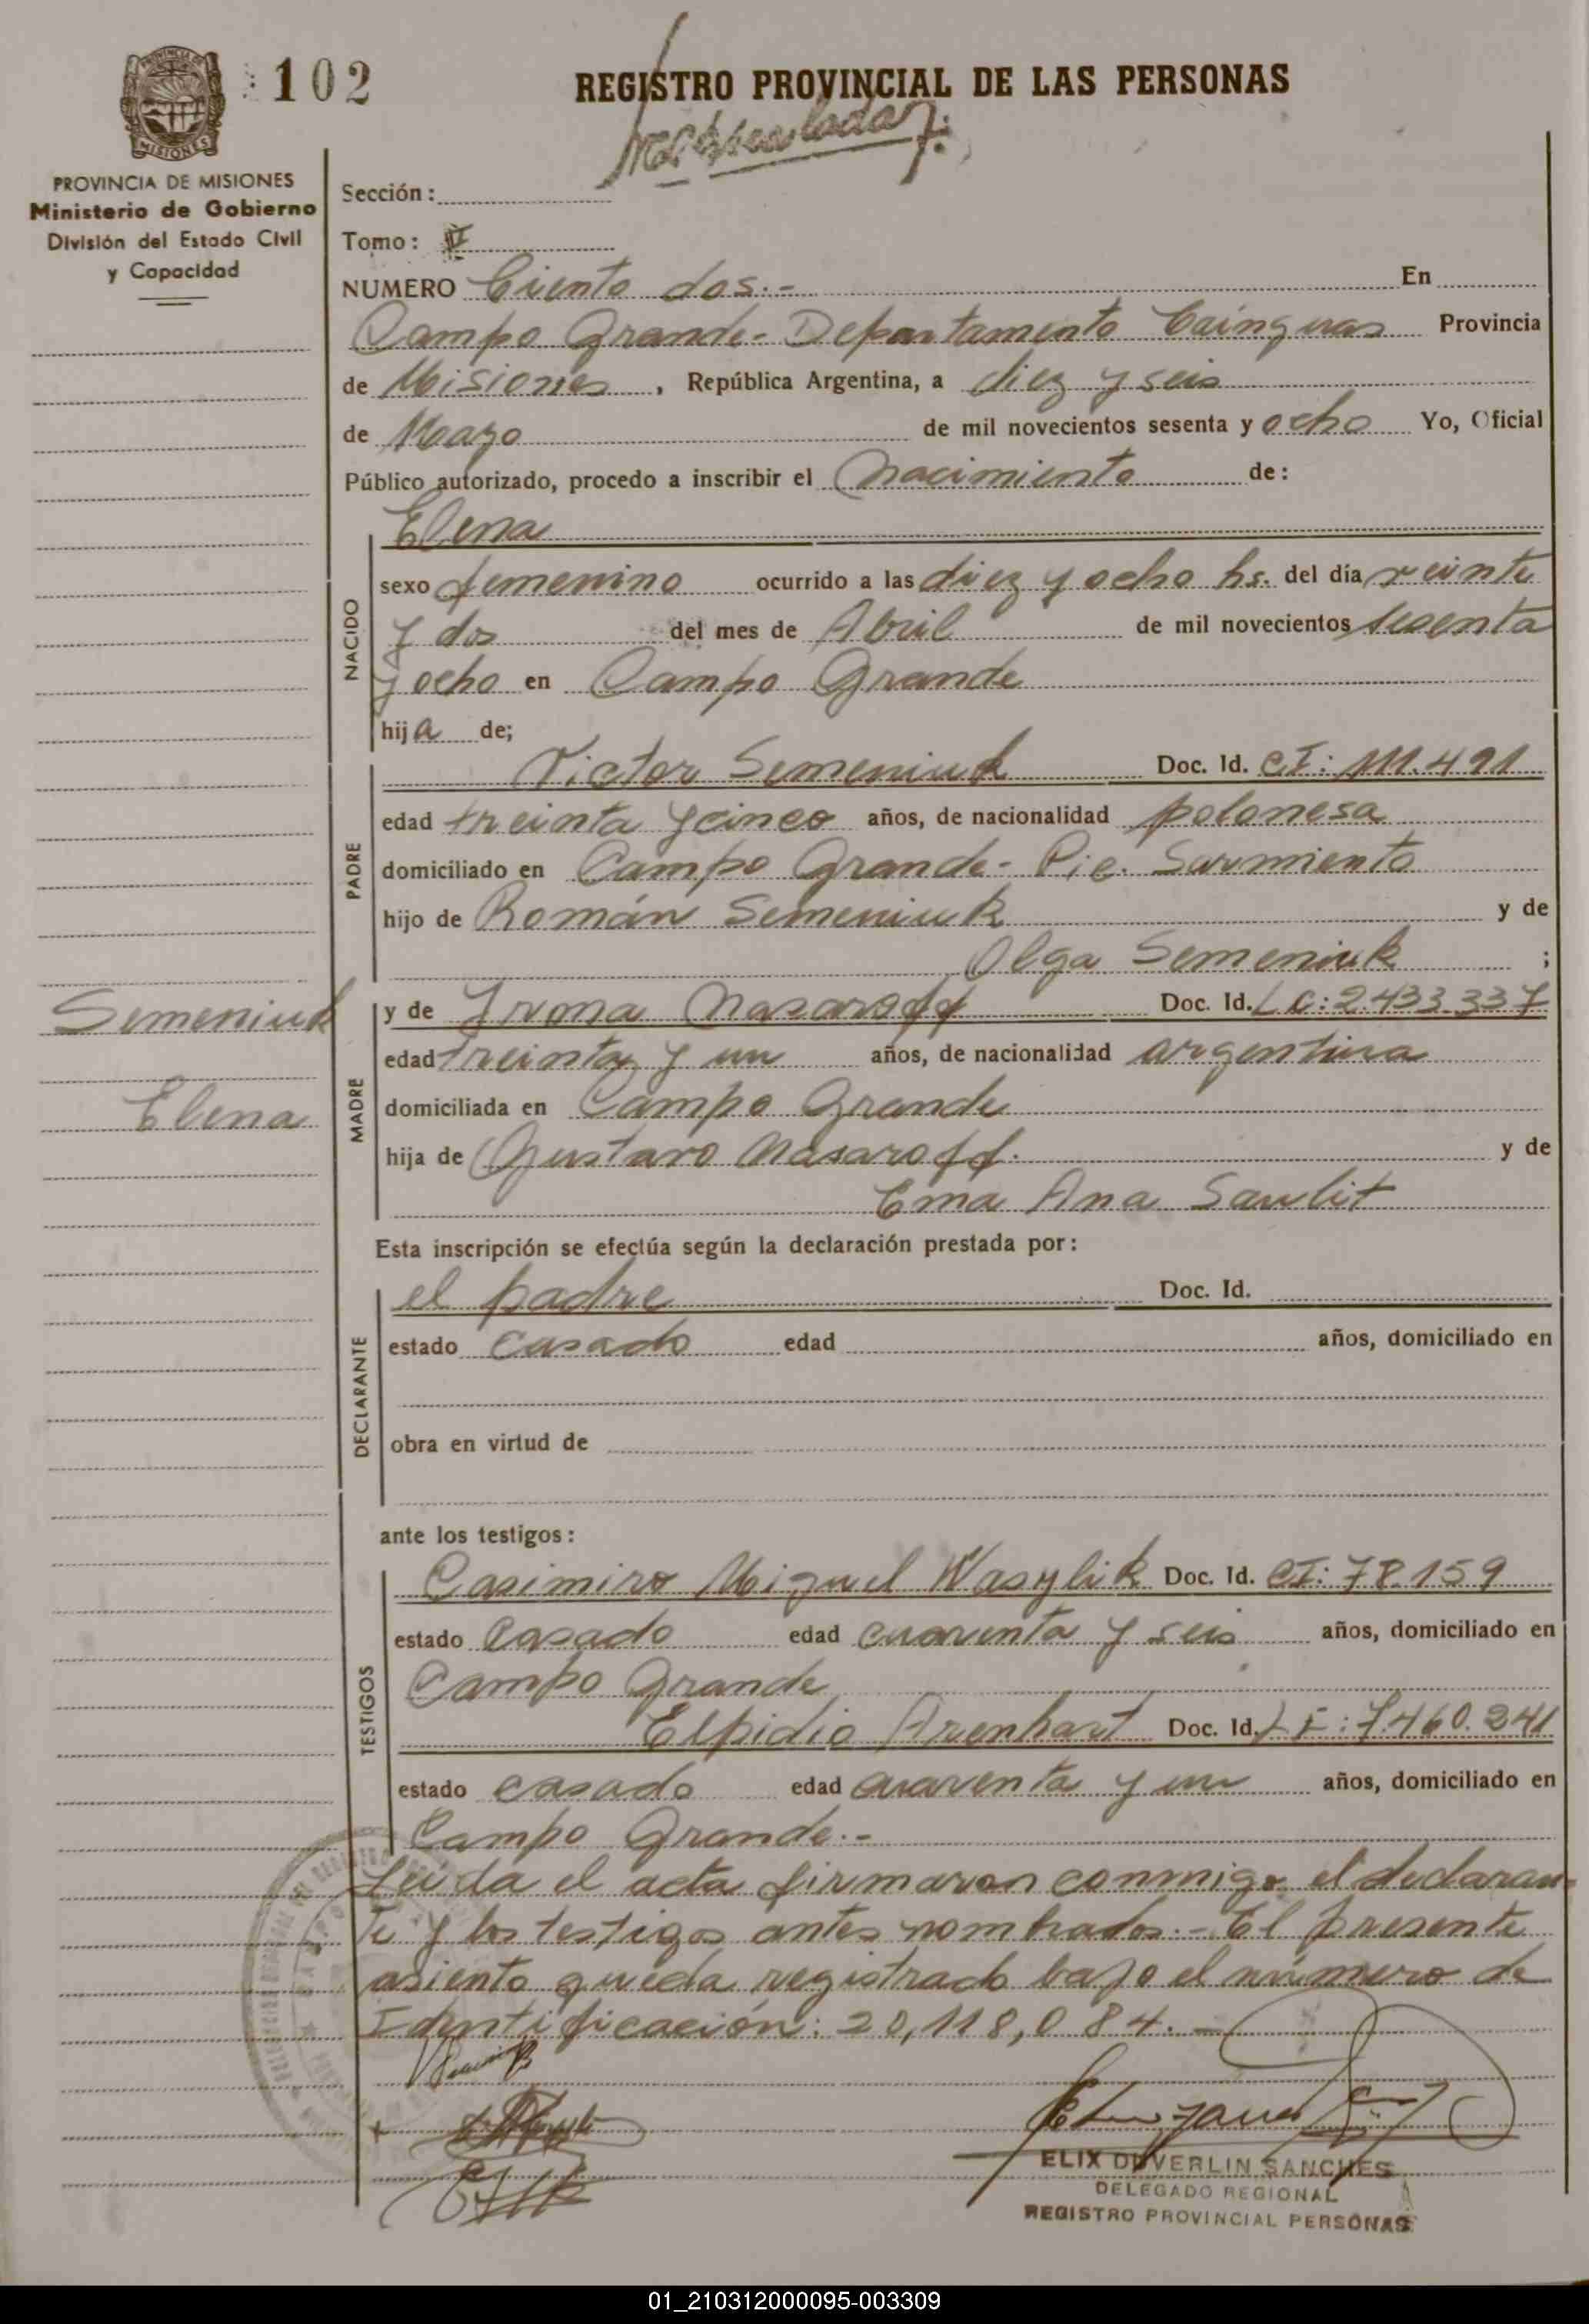 102
REGISTRO PROVINCIAL DE LAS PERSONAS
PROVINCIA DE MISIONES
Ministerio de Gobierno
División del Estado Civil
y Capacidad
Sección:
Tomo: II
NUMERO Ciento dos.- En
Campo Grande- Departamento Cainguas Provincia
de Misiones, República Argentina, a diez y seis
de Mayo de mil novecientos sesenta y ocho Yo, Oficial
Público autorizado, procedo a inscribir el Nacimiento de:
Elena
NACIDO
sexo femenino ocurrido a las diez y ocho hs. del día veinte
y dos del mes de Abril de mil novecientos sesenta
y ocho en Campo Grande
hija de;
PADRE
Victor Semeniuk Doc. Id. CI: 111.491
edad treinta y cinco años, de nacionalidad polonesa
domiciliado en Campo Grande- Pic. Sarmiento
hijo de Román Semeniuk y de
Olga Semeniuk ;
Semeniuk
Elena
MADRE
y de Irma Nasaroff Doc. Id. LC: 2.433.337
edad treinta y un años, de nacionalidad argentina
domiciliada en Campo Grande
hija de Gustavo Nasaroff. y de
Ema Ana Saulit
Esta inscripción se efectúa según la declaración prestada por:
DECLARANTE
el padre Doc. Id.
estado casado edad años, domiciliado en
obra en virtud de
ante los testigos:
TESTIGOS
Casimiro Miguel Wasylik Doc. Id. CI: 78.159
estado casado edad cuarenta y seis años, domiciliado en
Campo Grande
Elpidio Arenhart Doc. Id. LE: 7.460.241
estado casado edad cuarenta y un años, domiciliado en
Campo Grande.-
Leída el acta firmaron conmigo el declaran-
te y los testigos antes nombrados.- El presente
asiento queda registrado bajo el número de
Identificación: 20,118,084.-
ELIX DUVERLIN SANCHES
DELEGADO REGIONAL
REGISTRO PROVINCIAL PERSONAS
01_210312000095-003309